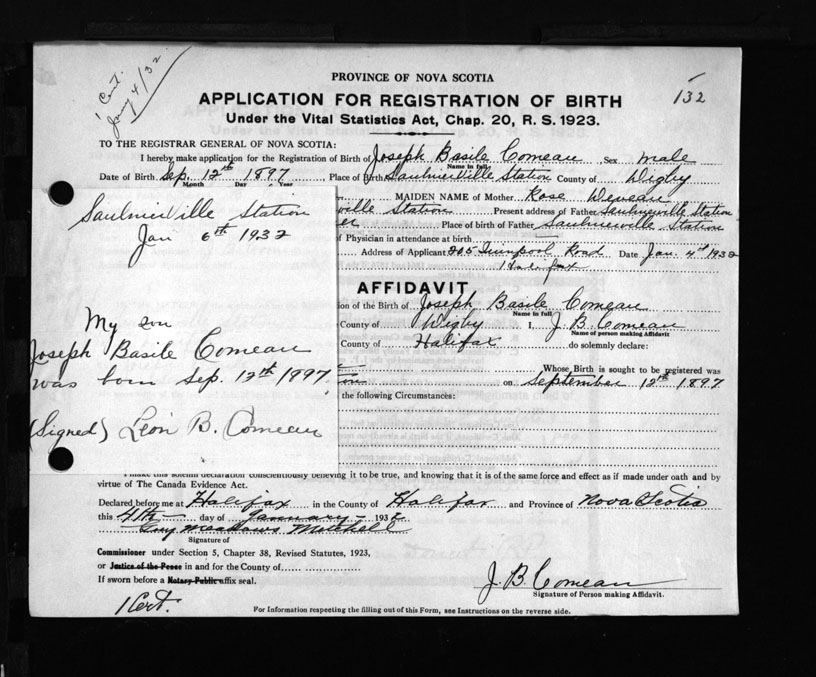 1 Cert.
Jany 4/32
132
PROVINCE OF NOVA SCOTIA
APPLICATION FOR REGISTRATION OF BIRTH
Under the Vital Statistics Act, Chap. 20, R. S. 1923.
TO THE REGISTRAR GENERAL OF NOVA SCOTIA:
I hereby make application for the Registration of Birth of Joseph Basile Comeau, Sex male
Name in full
Date of Birth Sep. 12th 1897, Place of Birth Saulnierville Station County of Digby
Month Day Year
MAIDEN NAME of Mother Rose Deveau
ville Station Present address of Father Saulnierville Station
er Place of birth of Father Saulnierville Station
of Physician in attendance at birth
Address of Applicant 205 Quinpool Road Date Jan. 4th 1932
Halifax
Saulnierville Station
Jan 6th 1932
My son
Joseph Basile Comeau
was born Sep. 12th 1897.
(Signed) Léon B. Comeau
AFFIDAVIT
ion of the Birth of Joseph Basile Comeau
Name in full
County of Digby I, J B. Comeau
Name of person making Affidavit
County of Halifax do solemnly declare:
Whose Birth is sought to be registered was
on September 12th 1897
the following Circumstances:
I make this solemn declaration conscientiously believing it to be true, and knowing that it is of the same force and effect as if made under oath and by
virtue of The Canada Evidence Act.
Declared before me at Halifax in the County of Halifax and Province of Nova Scotia
this 4th day of January 1932
Guy Meadows Mitchell
Signature of
Commissioner under Section 5, Chapter 38, Revised Statutes, 1923,
or Justice of the Peace in and for the County of
If sworn before a Notary Public affix seal.
J. B. Comeau
Signature of Person making Affidavit.
1 Cert.
For Information respecting the filling out of this Form, see Instructions on the reverse side.